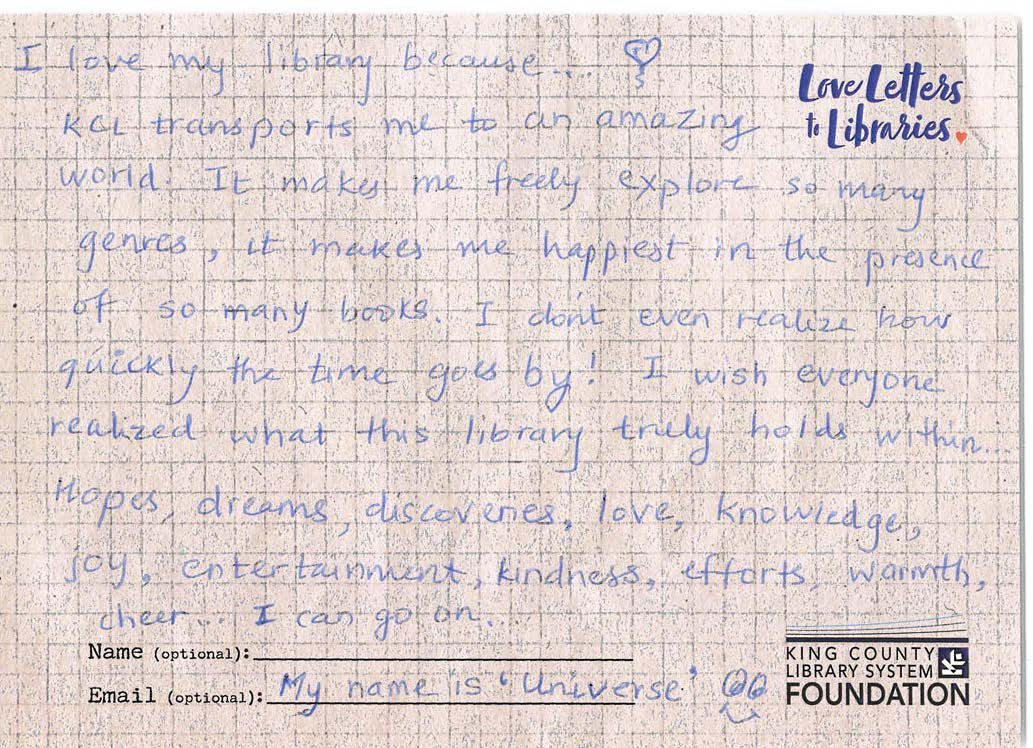 I love my library because...
Love Letters
to Libraries
KCL transports me to an amazing
world. It makes me freely explore so many
genres, it makes me happiest in the presence
of so many books. I don't even realize how
quickly the time goes by! I wish everyone
realized what this library truly holds within...
Hopes, dreams, discoveries, love, knowledge,
joy, entertainment, kindness, efforts, warmth,
cheer... I can go on...
Name (optional):
Email (optional): My name is 'Universe'
KING COUNTY
LIBRARY SYSTEM
FOUNDATION